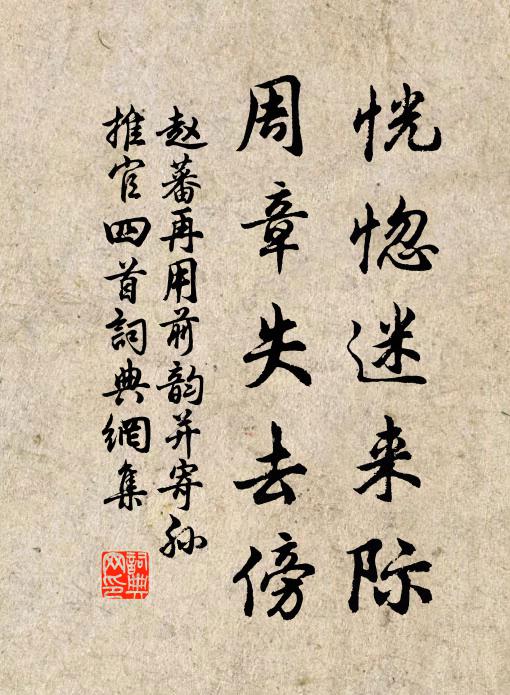 恍惚迷来际
周章失去傍
赵蕃再用前韵并寄孙
推官四首詞典網集
詞典网印